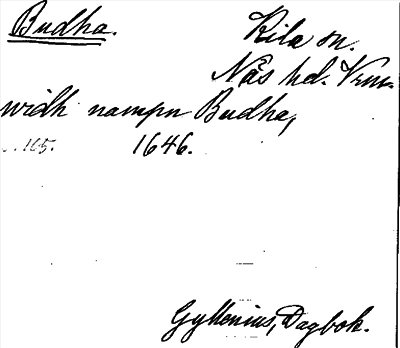 Budha.
Kila sn.
Näs hd. Vrm.
widh nampn Budha,
165. 1646.
Gyllenius, Dagbok.